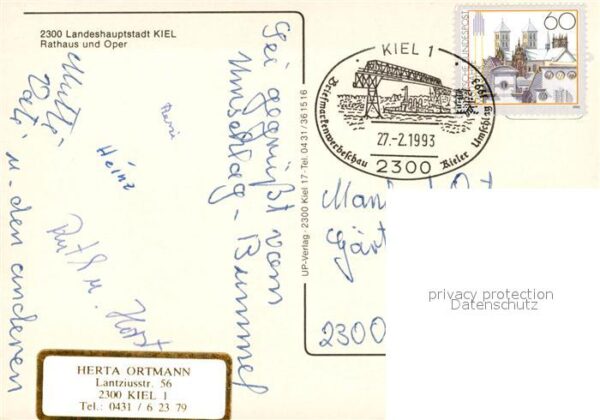 2300 Landeshauptstadt KIEL
Rathaus und Oper
Sei gegrüßt vom
Umschlag-Bummel
Mutti
u. den anderen
Heinz
Ruth u. Horst
HERTA ORTMANN
Lantziusstr. 56
2300 KIEL 1
Tel.: 0431 / 6 23 79
UP-Verlag · 2300 Kiel 17 · Tel. 04 31 / 36 15 16
KIEL 1
Briefmarkenwerbeschau Kieler Umschlag 1993
27.-2.1993
2300
60
2300
privacy protection
Datenschutz